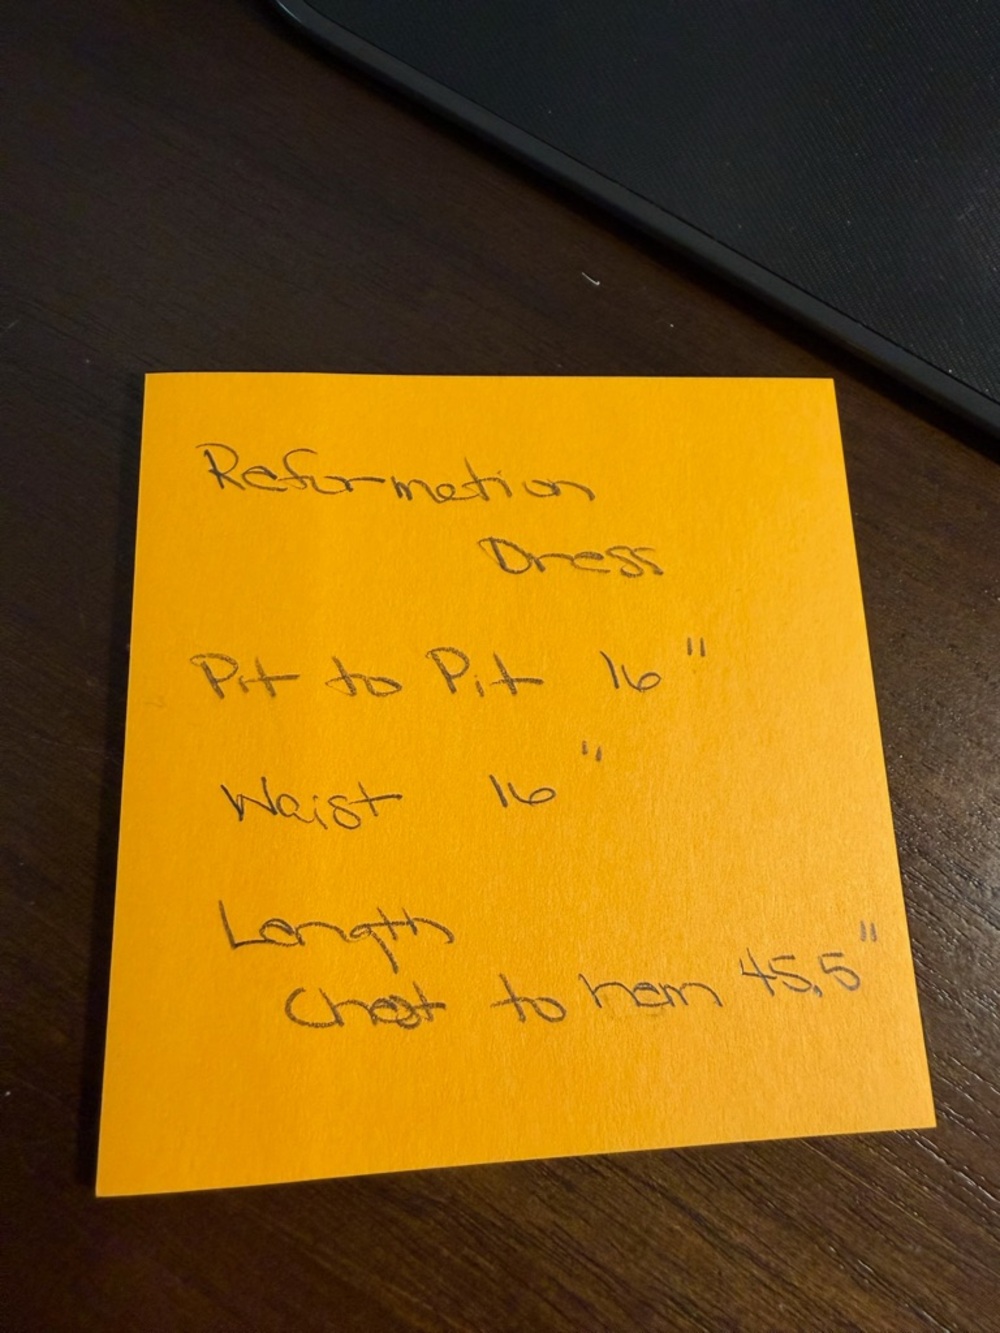 Reformation
Dress
Pit to Pit 16"
Waist 16"
Length
Chest to hem 45.5"